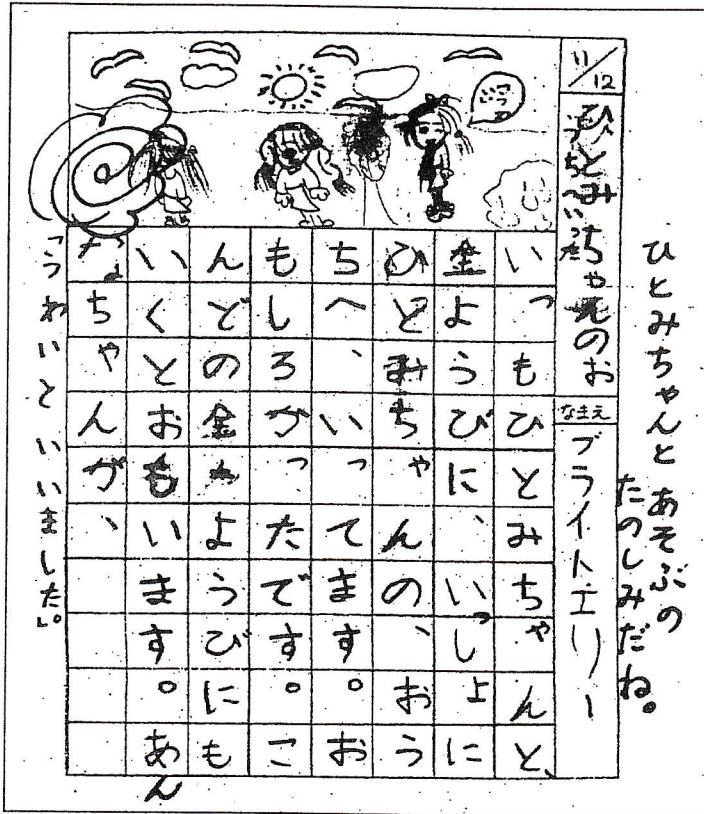 ひとみちゃんと あそぶの
たのしみだね。
11/12
ひとみちゃんのお
うちへいった
なまえ
ブライト・エリー
いつもひとみちゃんと、
金ようびに、いっしょに
ひとみちゃんの、おう
ちへ、いってます。お
もしろがったです。こ
んどの金ようびにも
いくとおもいます。あん
なちゃんが、
「うわいといいました。